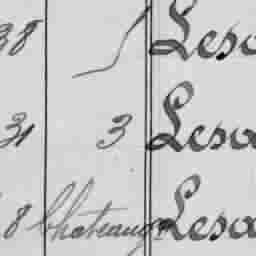 38 Leso
31 3 Leso
8 Chateaugu Leso